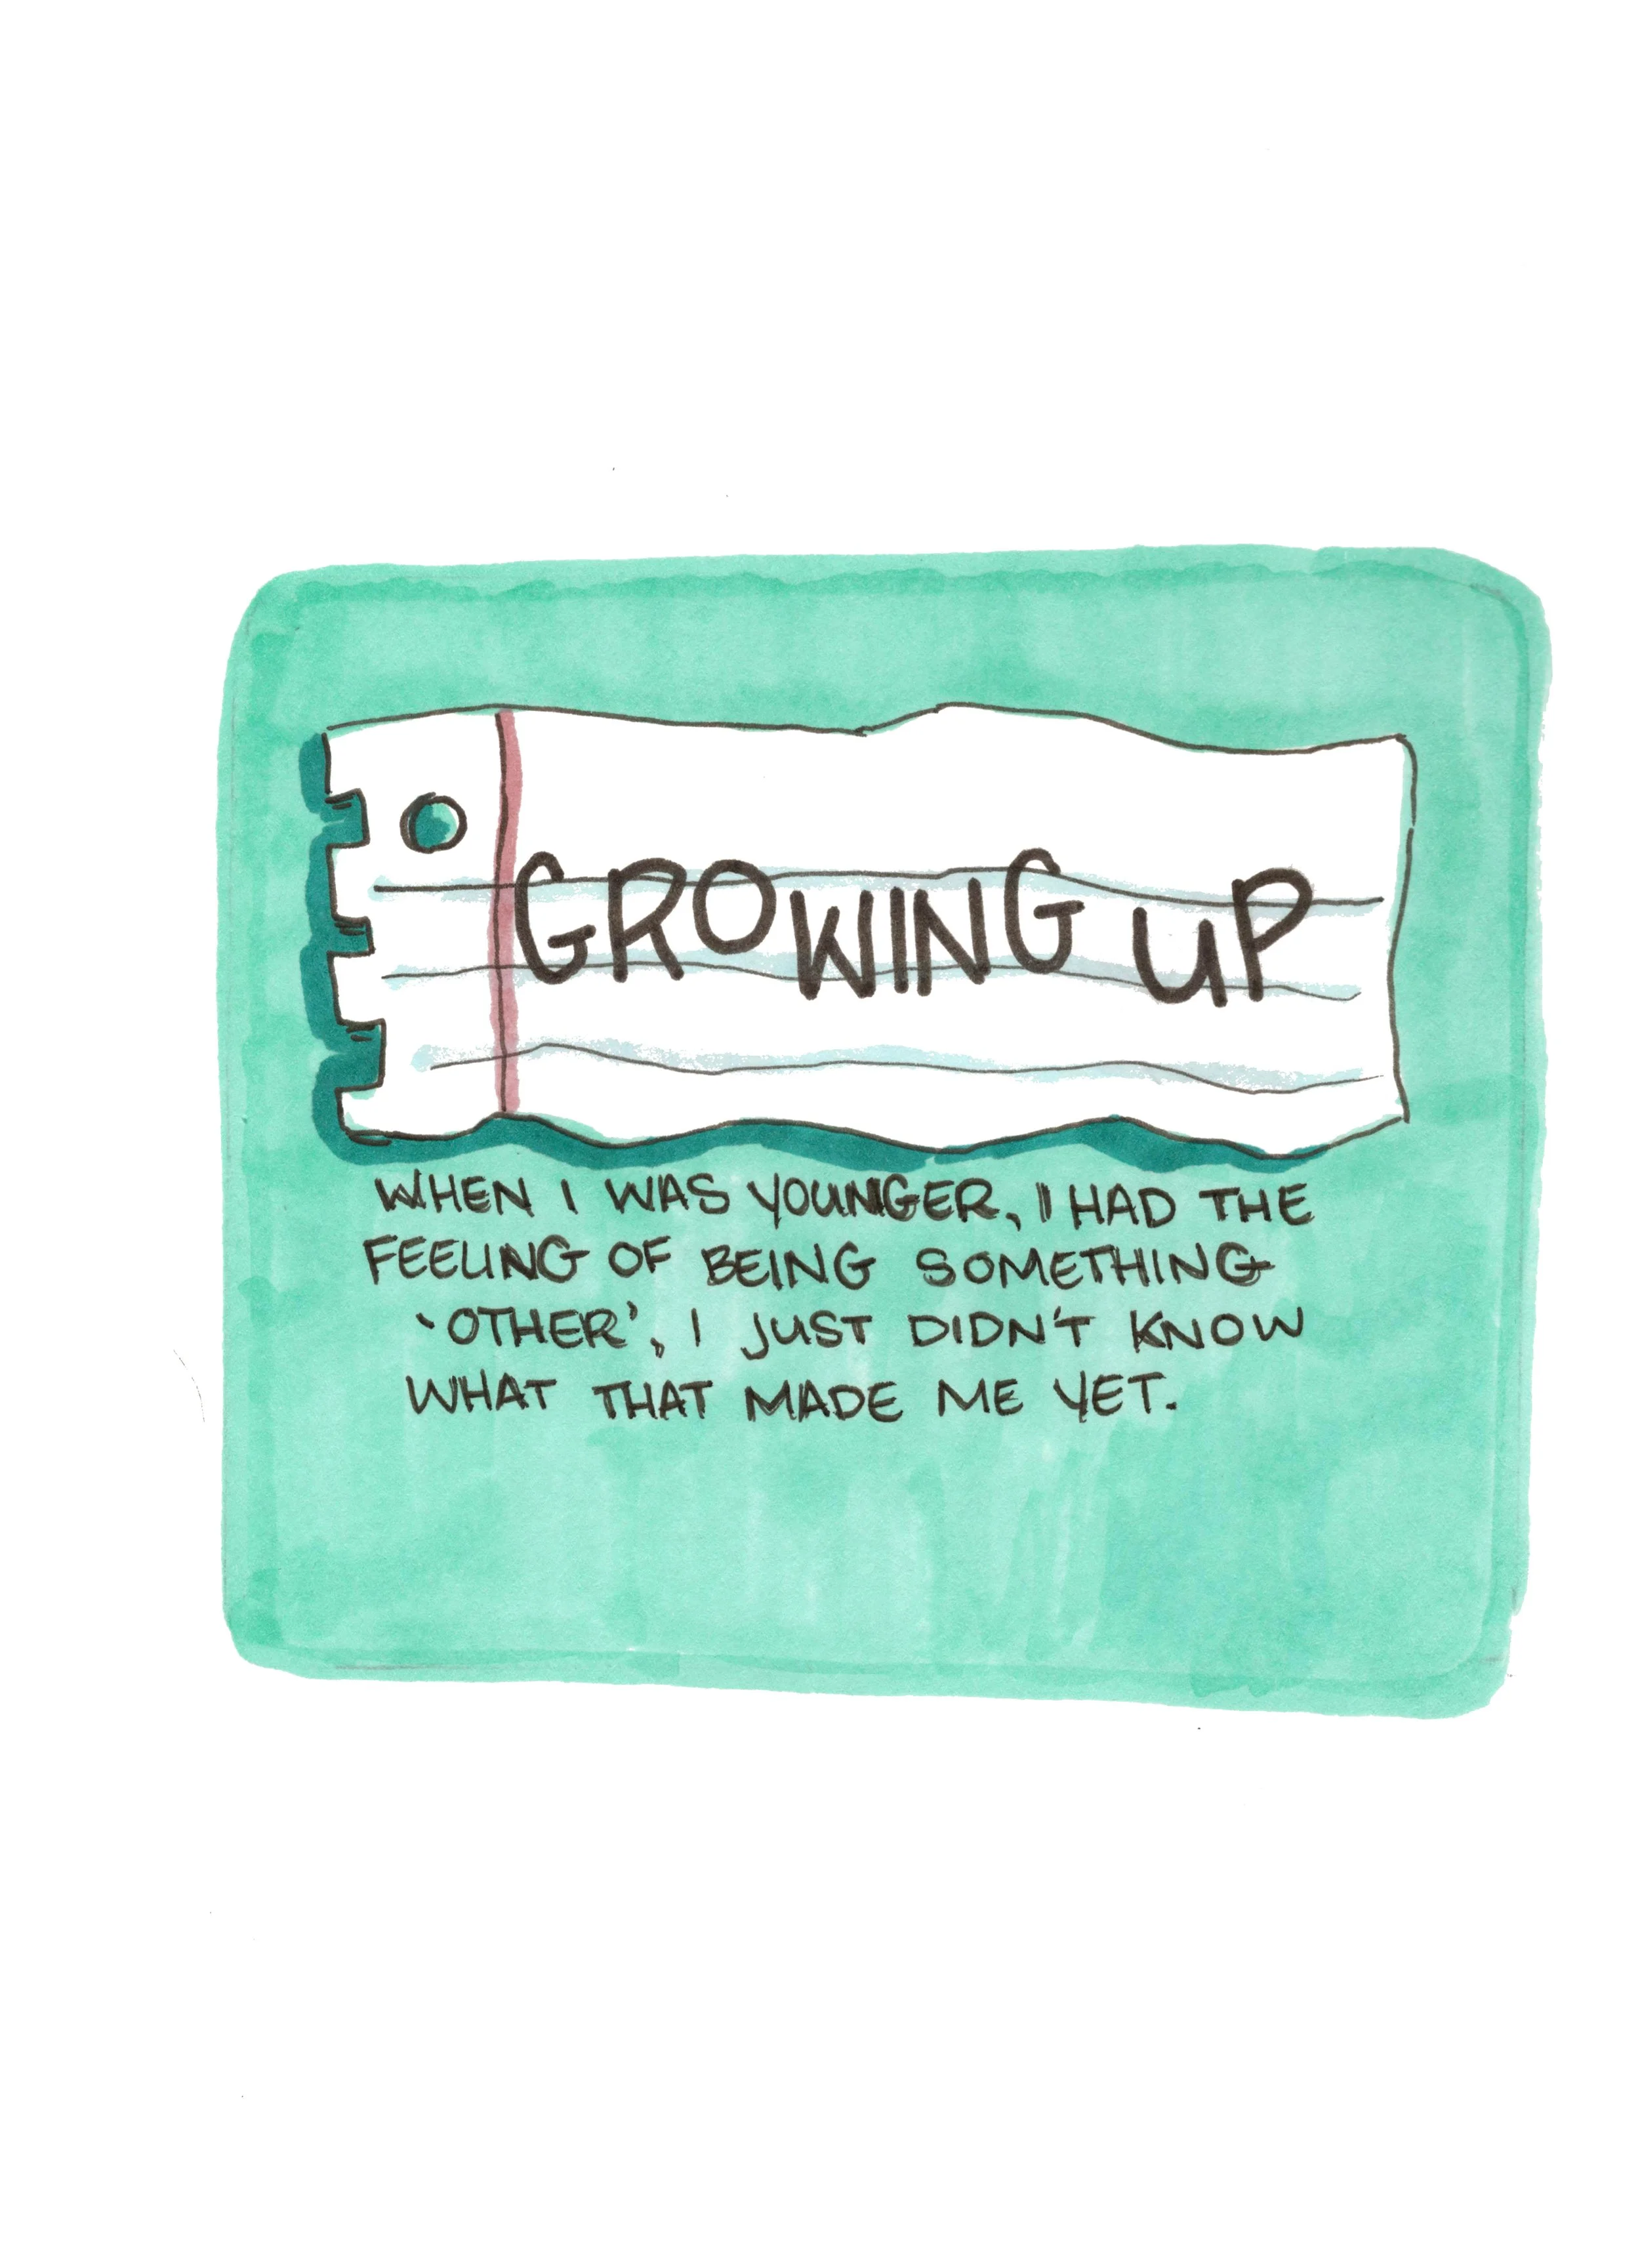 GROWING UP
WHEN I WAS YOUNGER, I HAD THE
FEELING OF BEING SOMETHING
'OTHER', I JUST DIDN'T KNOW
WHAT THAT MADE ME YET.